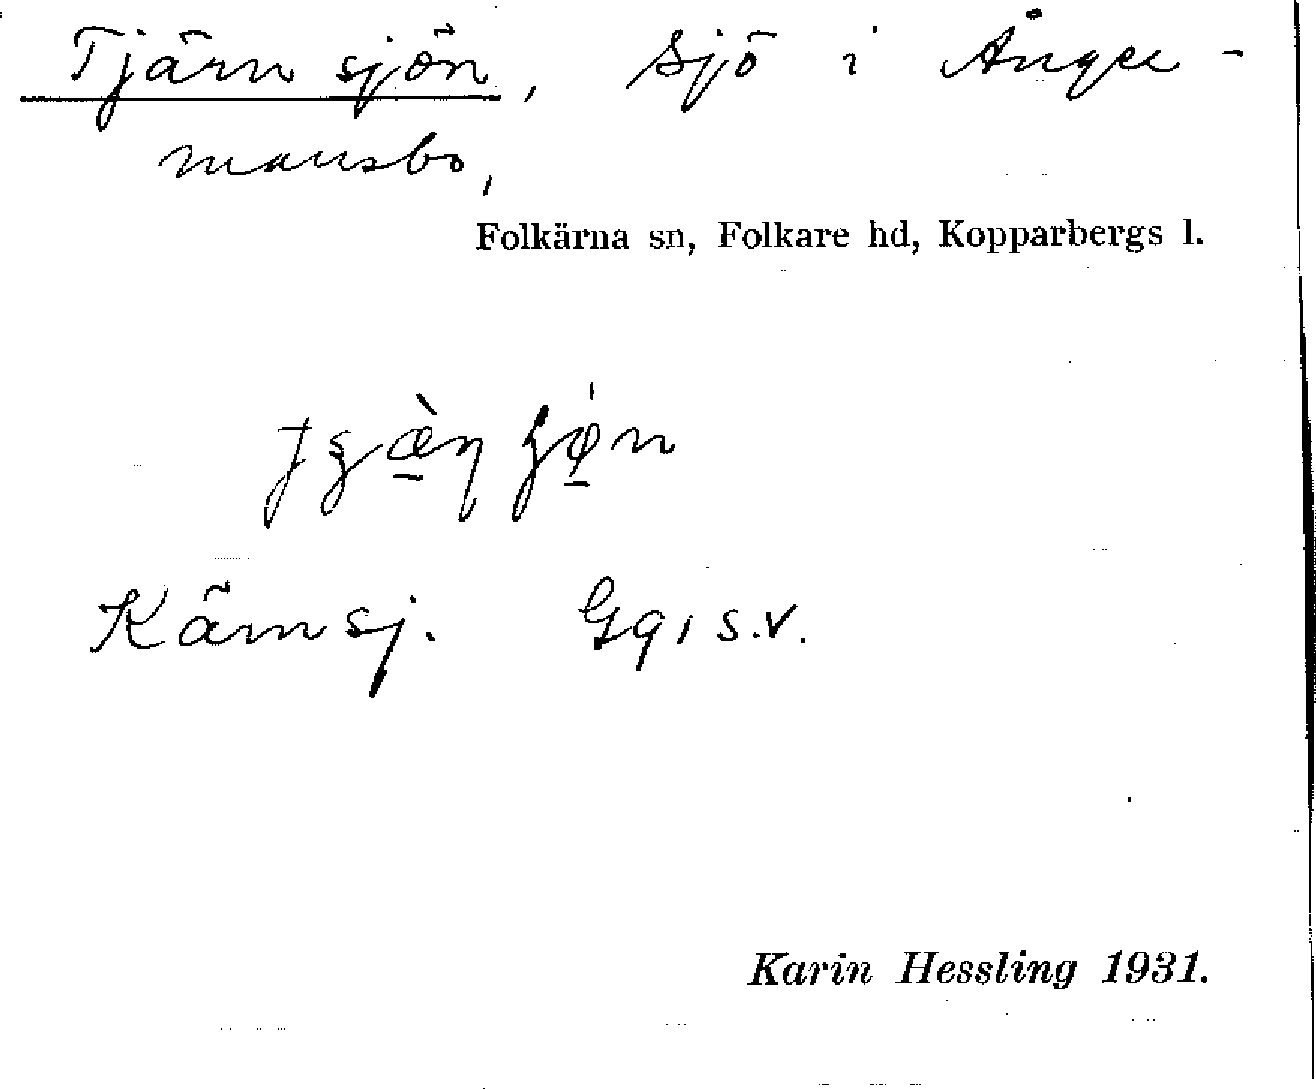 Tjärnsjön, sjö i Änger-
mansbo,
Folkärna sn, Folkare hd, Kopparbergs l.
Kärnsj. Gq, s.v.
Karin Hessling 1931.